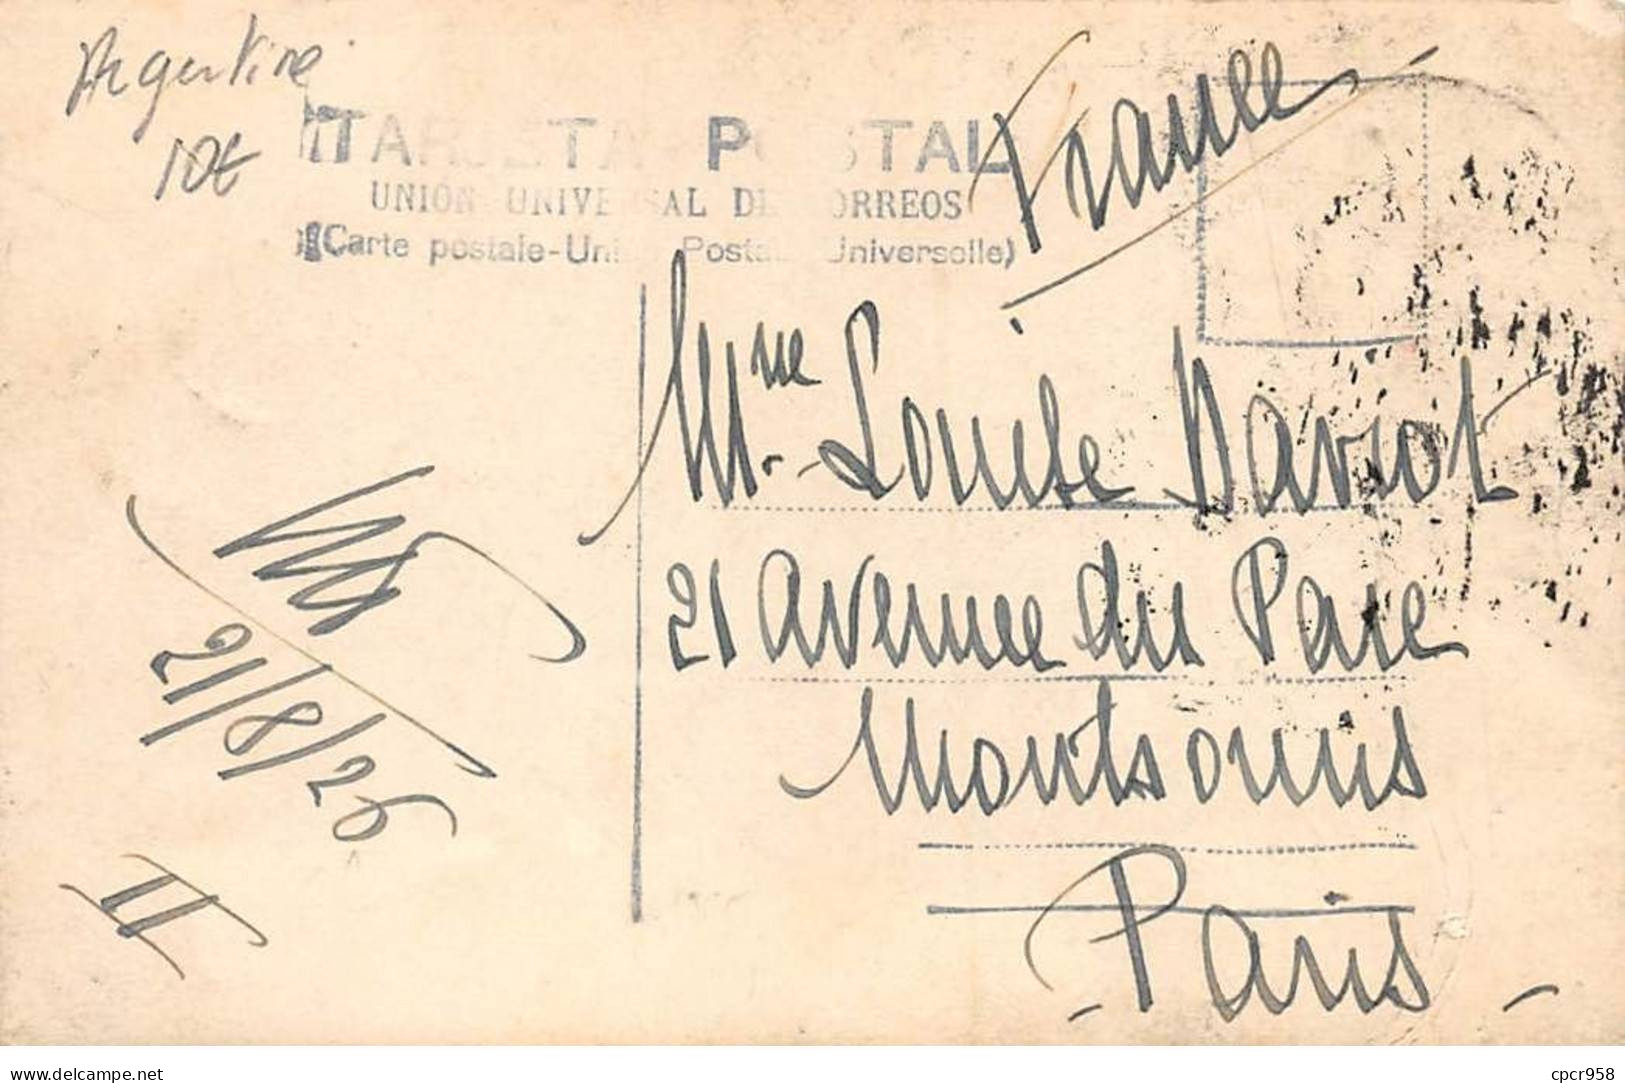 Argentine
10€
TARJETA POSTAL
UNIÓN UNIVERSAL DE CORREOS
(Carte postale-Union Postale Universelle)
France
Mme Louise Daviot
21 avenue du Parc
Montsouris
Paris
21/8/26
II
delcampe.net
cpcr958